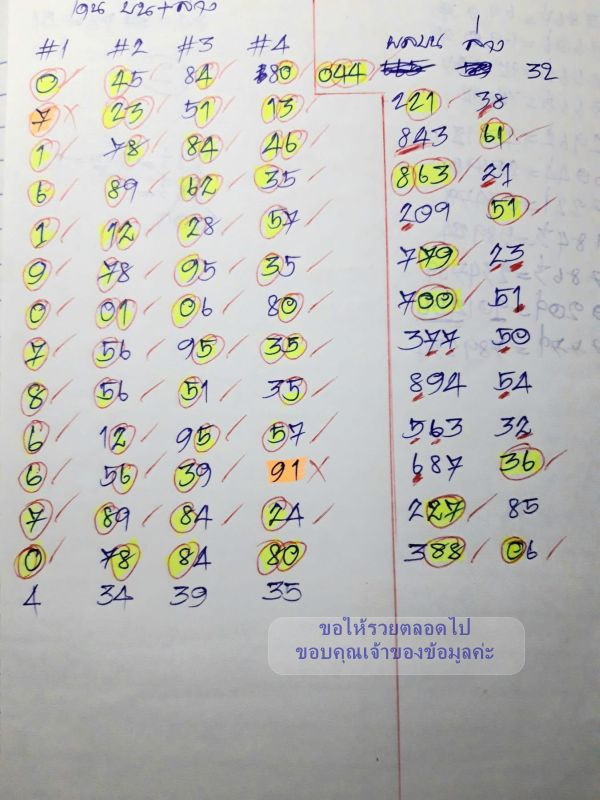 เด่น บน+ล่าง
#1 #2 #3 #4 ผลบน ล่าง
0 45 84 80 044 32
7 × 23 51 13 221 38
1 78 84 46 843 61
6 89 62 35 863 21
1 12 28 57 209 51
9 78 95 35 779 23
0 01 06 80 700 51
7 56 95 35 377 50
8 56 51 35 894 54
6 12 95 57 563 32
6 56 39 91 × 687 36
7 89 84 24 227 85
0 78 84 80 388 06
4 34 39 35
ขอให้รวยตลอดไป
ขอบคุณเจ้าของข้อมูลค่ะ